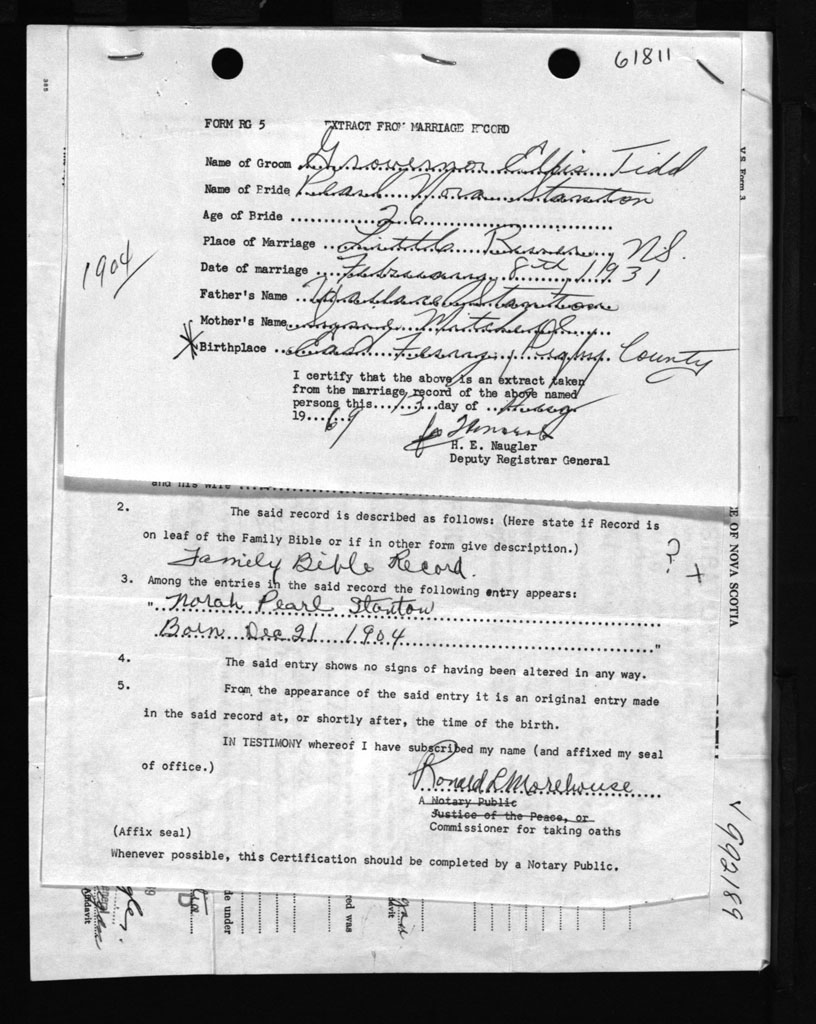 61811
FORM RG 5 EXTRACT FROM MARRIAGE RECORD
Name of Groom Growernor Ellis Tidd
Name of Bride Pearl Nora Stanton
Age of Bride 26
Place of Marriage Little River, N.S.
Date of marriage February 8th 1931
1904
Father's Name Wallace Stanton
Mother's Name Mitchell
Birthplace East Ferry, Digby County
I certify that the above is an extract taken
from the marriage record of the above named
persons this 13 day of Aug
19 69
H. E. Naugler
Deputy Registrar General
V.S. Form 3
and his wife
2. The said record is described as follows: (Here state if Record is
on leaf of the Family Bible or if in other form give description.)
Family Bible Record.
? +
3. Among the entries in the said record the following entry appears:
" Norah Pearl Stanton
Born Dec 21 1904 "
4. The said entry shows no signs of having been altered in any way.
5. From the appearance of the said entry it is an original entry made
in the said record at, or shortly after, the time of the birth.
IN TESTIMONY whereof I have subscribed my name (and affixed my seal
of office.)
Ronald L Morehouse
A Notary Public
Justice of the Peace, or
Commissioner for taking oaths
(Affix seal)
Whenever possible, this Certification should be completed by a Notary Public.
E OF NOVA SCOTIA
V 992189
Affidavit
de under
red was
Affidavit